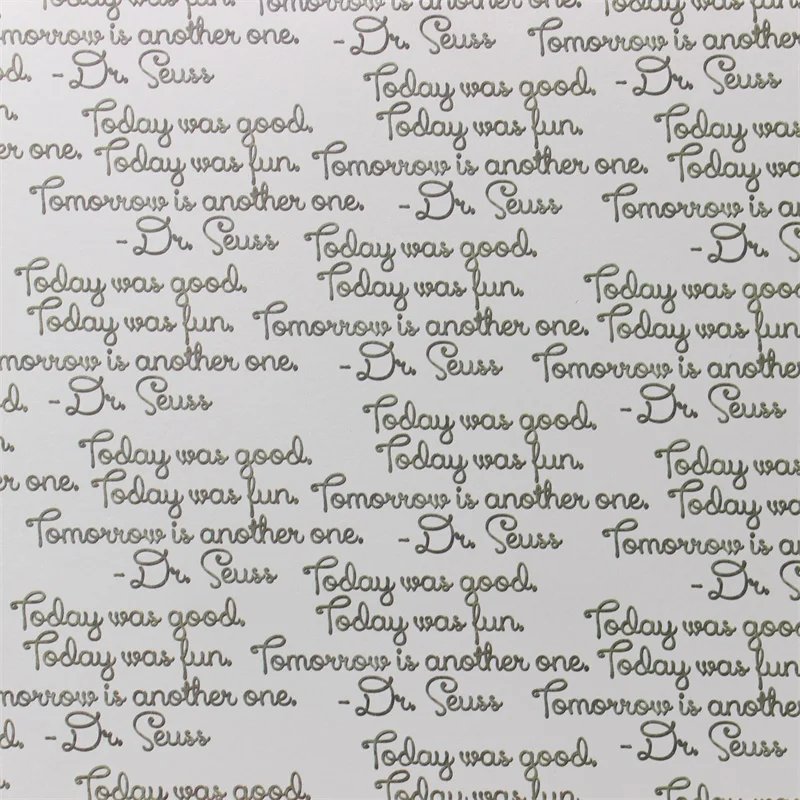 Today was fun. Tomorrow is another one. Today was fun.
morrow is another one. - Dr. Seuss Tomorrow is another
d. - Dr. Seuss Today was good. - Dr. Seuss
n. Today was good. Today was fun. Today was
er one. Today was fun. Tomorrow is another one. Today wa
Tomorrow is another one. - Dr. Seuss Tomorrow is a
- Dr. Seuss Today was good. - Dr. S
Today was good. Today was fun. Today was goo
Today was fun. Tomorrow is another one. Today was fun
morrow is another one. - Dr. Seuss Tomorrow is anothe
d. - Dr. Seuss Today was good. - Dr. Seuss
n. Today was good. Today was fun. Today was
er one. Today was fun. Tomorrow is another one. Today wa
Tomorrow is another one. - Dr. Seuss Tomorrow is a
- Dr. Seuss Today was good. - Dr. S
Today was good. Today was fun. Today was goo
Today was fun. Tomorrow is another one. Today was fun
morrow is another one. - Dr. Seuss Tomorrow is anothe
d. - Dr. Seuss Today was good. - Dr. Seuss
Today was good. Today was fun.